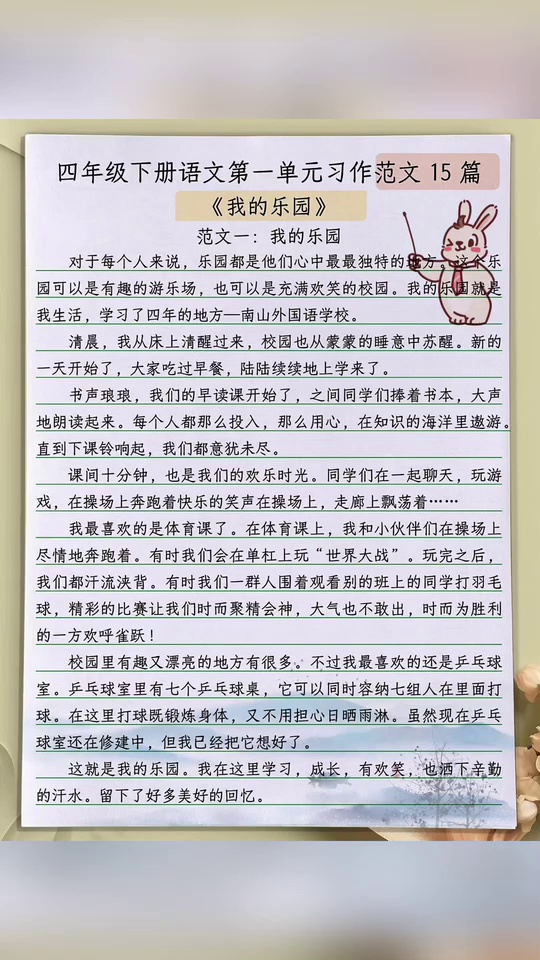 四年级下册语文第一单元习作范文15篇
《我的乐园》
范文一：我的乐园
对于每个人来说，乐园都是他们心中最最独特的地方。这个乐
园可以是有趣的游乐场，也可以是充满欢笑的校园。我的乐园就是
我生活，学习了四年的地方—南山外国语学校。
清晨，我从床上清醒过来，校园也从蒙蒙的睡意中苏醒。新的
一天开始了，大家吃过早餐，陆陆续续地上学来了。
书声琅琅，我们的早读课开始了，之间同学们捧着书本，大声
地朗读起来。每个人都那么投入，那么用心，在知识的海洋里遨游。
直到下课铃响起，我们都意犹未尽。
课间十分钟，也是我们的欢乐时光。同学们在一起聊天，玩游
戏，在操场上奔跑着快乐的笑声在操场上，走廊上飘荡着……
我最喜欢的是体育课了。在体育课上，我和小伙伴们在操场上
尽情地奔跑着。有时我们会在单杠上玩“世界大战”。玩完之后，
我们都汗流浃背。有时我们一群人围着观看别的班上的同学打羽毛
球，精彩的比赛让我们时而聚精会神，大气也不敢出，时而为胜利
的一方欢呼雀跃！
校园里有趣又漂亮的地方有很多。不过我最喜欢的还是乒乓球
室。乒乓球室里有七个乒乓球桌，它可以同时容纳七组人在里面打
球。在这里打球既锻炼身体，又不用担心日晒雨淋。虽然现在乒乓
球室还在修建中，但我已经把它想好了。
这就是我的乐园。我在这里学习，成长，有欢笑，也洒下辛勤
的汗水。留下了好多美好的回忆。